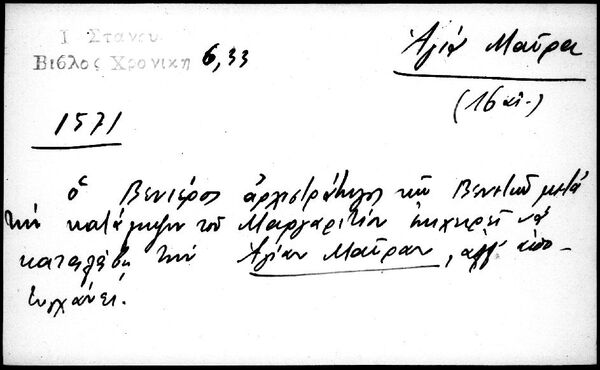 Ι Στανου
Βιβλος Χρονικη 6,33
Ἁγία Μαῦρα
(16 αἰ.)
1571
ὁ Βενιέρος ἀρχιστράτηγος τῶν Βενετῶν μετὰ
τὴν κατάληψιν τοῦ Μαργαριτίου ἐπιχειρεῖ νὰ
καταλάβῃ τὴν Ἁγίαν Μαῦραν, ἀλλ' ἀπο-
τυγχάνει.